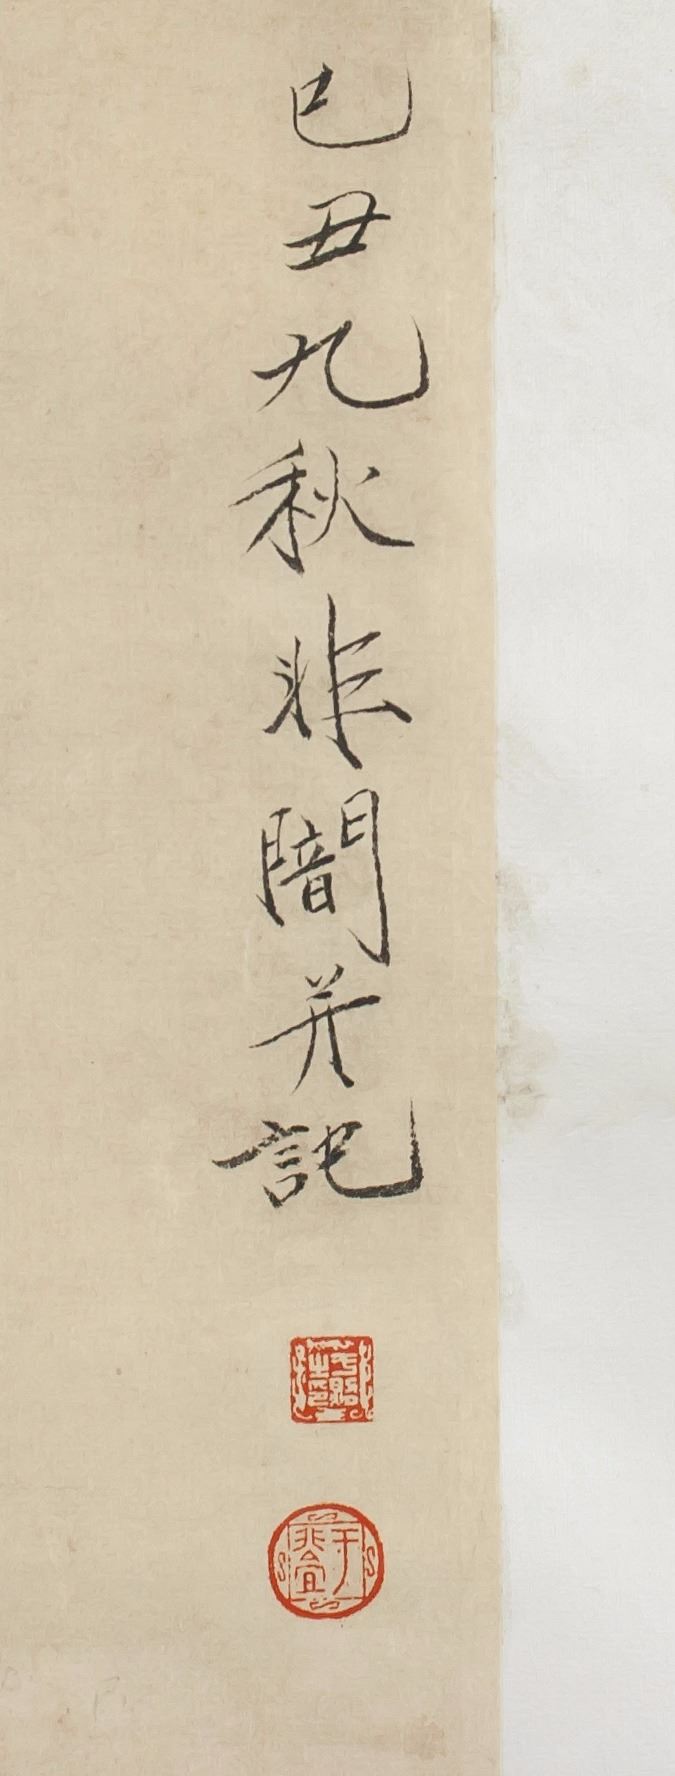 己丑九秋非闇并記
于非